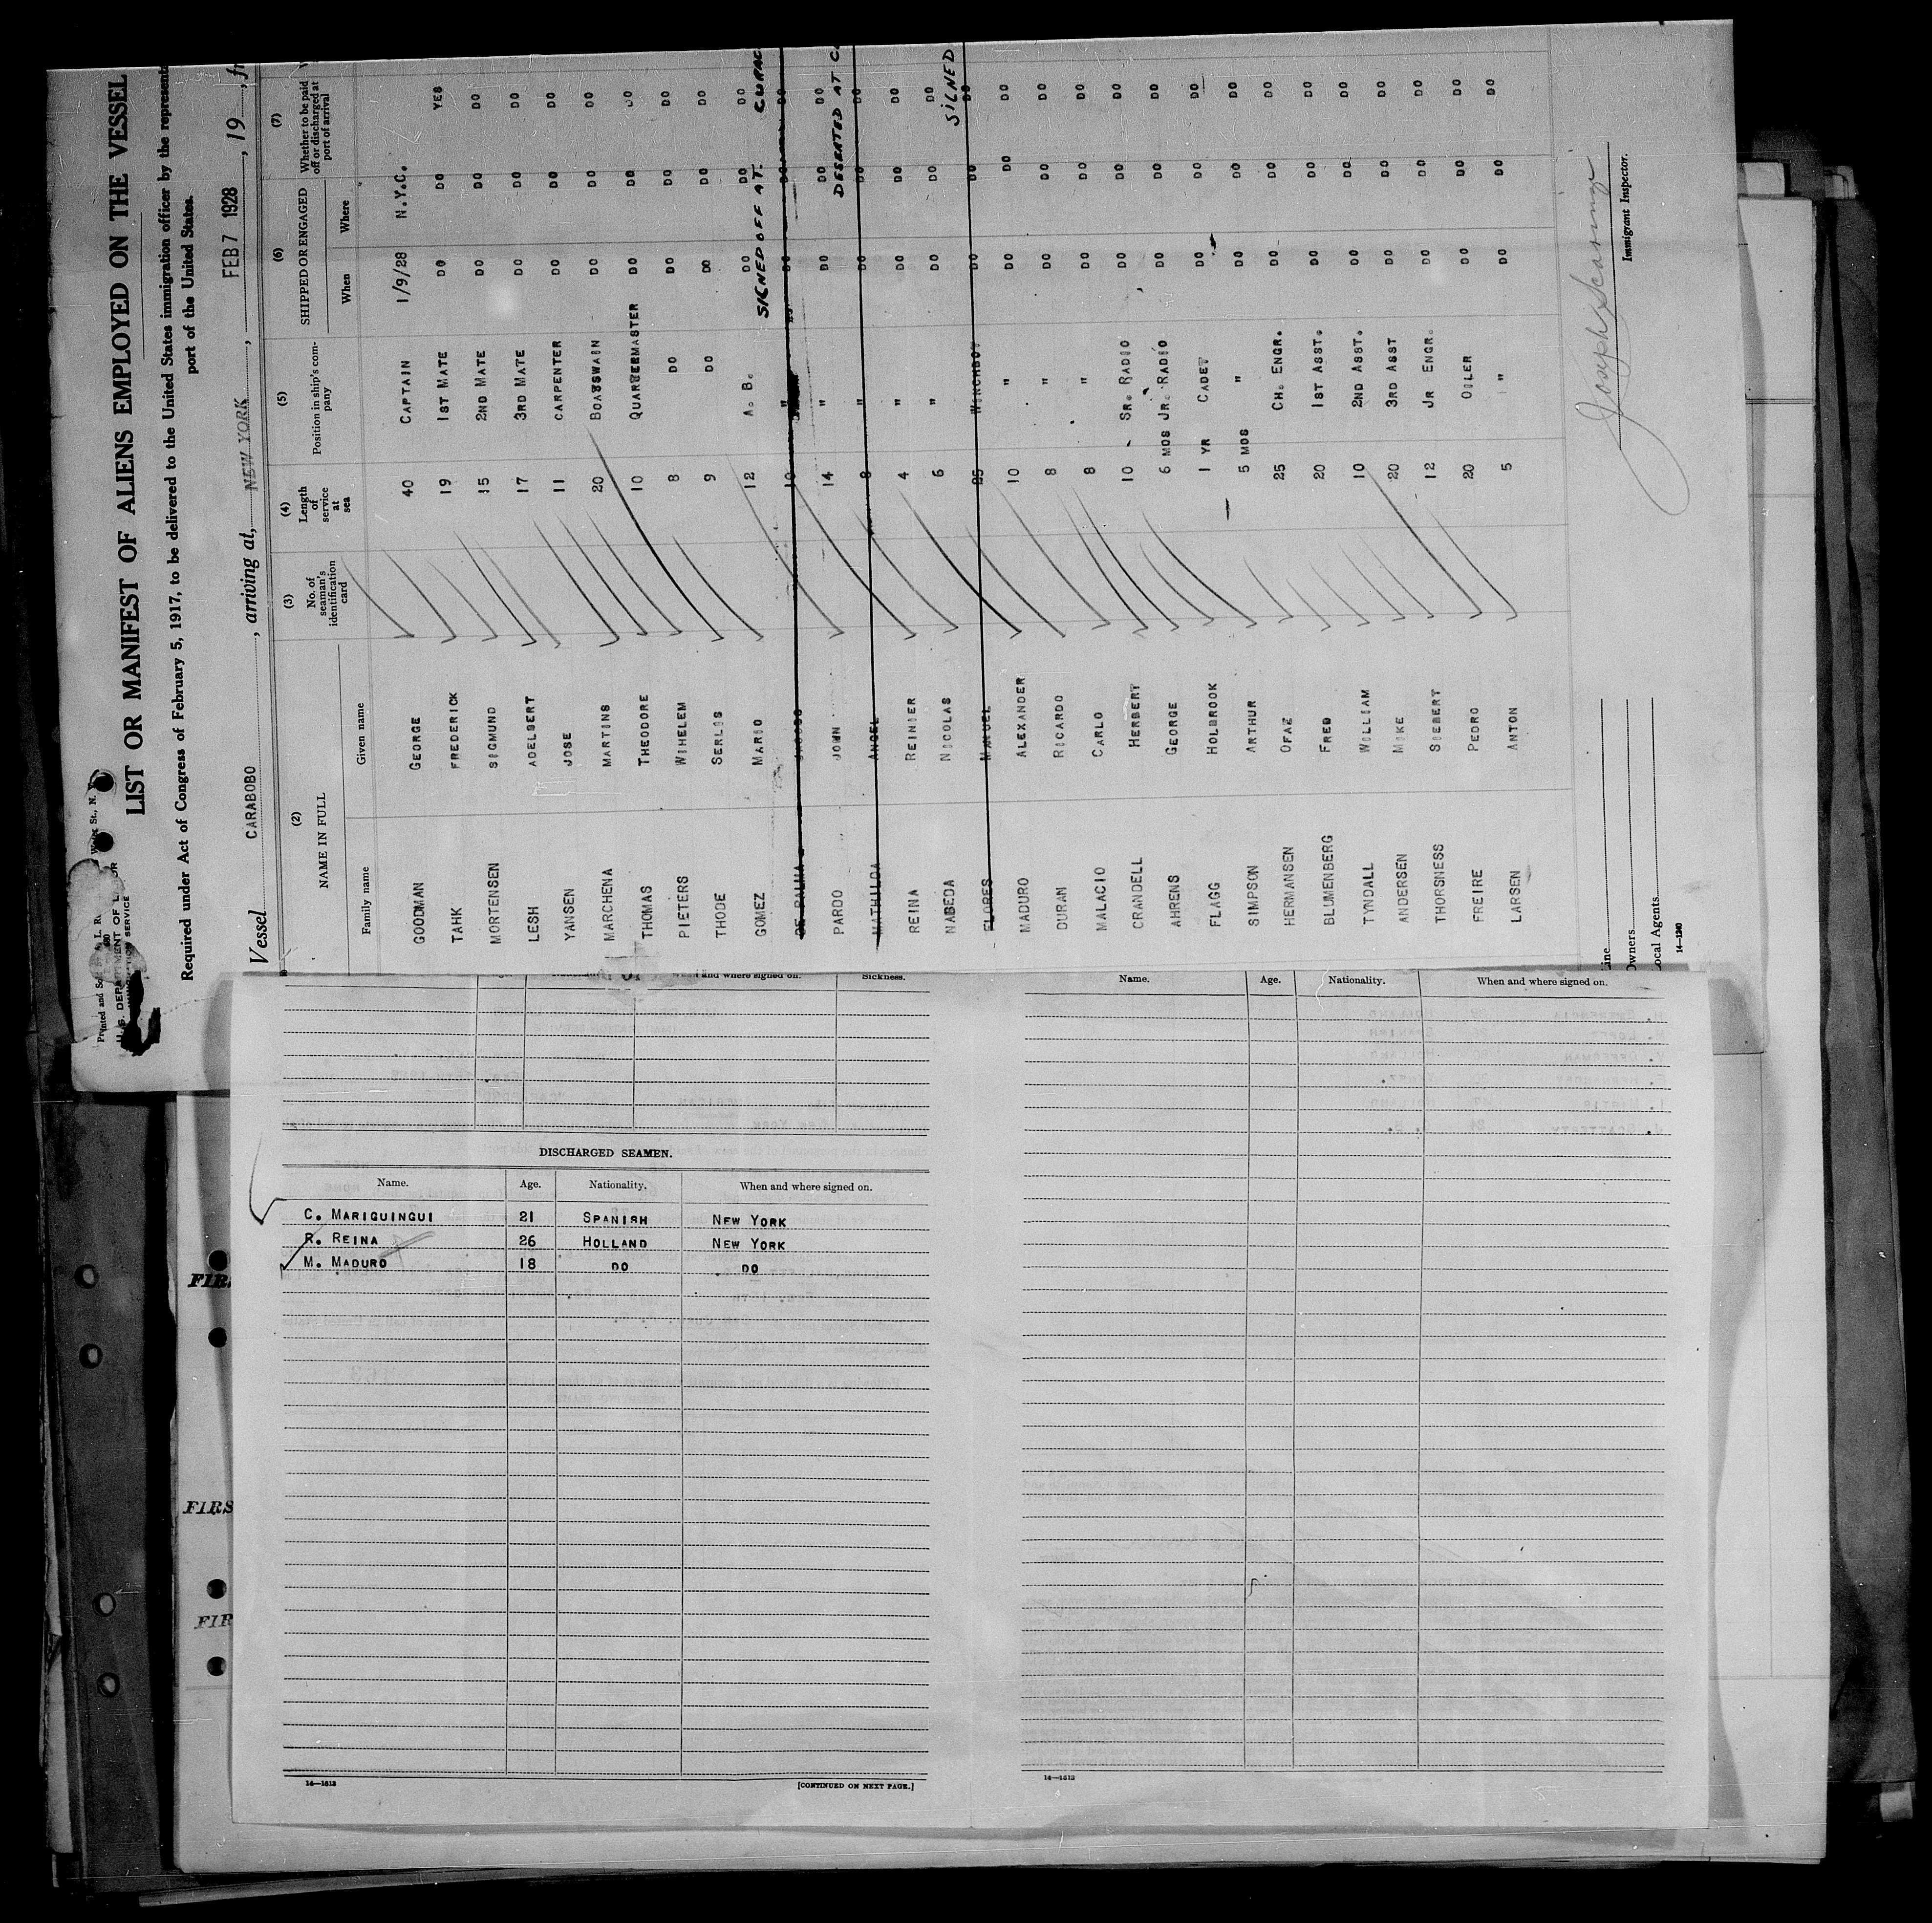 LIST OR MANIFEST OF ALIENS EMPLOYED ON THE VESSEL
Required under Act of Congress of February 5, 1917, to be delivered to the United States immigration officer by the
port of the United States.
Vessel CARABOBO, arriving at, NEW YORK, FEB 7 1928, 19
(2) (3) (4) (5) (6) (7)
NAME IN FULL No. of seaman's identification card Length of service at sea Position in ship's company SHIPPED OR ENGAGED Whether to be paid off or discharged at port of arrival
Family name Given name When Where
GOODMAN GEORGE 40 CAPTAIN 1/9/28 N.Y.C.
TAHK FREDERICK 19 1ST MATE DO DO YES
MORTENSEN SIGMUND 15 2ND MATE DO DO DO
LESH ADELBERT 17 3RD MATE DO DO DO
YANSEN JOSE 11 CARPENTER DO DO DO
MARCHENA MARTINS 20 BOATSWAIN DO DO DO
THOMAS THEODORE 10 QUARTERMASTER DO DO DO
PIETERS WIHELEM 8 DO DO DO DO
THODE SERLIS 9 DO DO DO DO
GOMEZ MARIO 12 A. B. DO DO DO
SIGNED OFF AT.
DE PALMA JACOBO 10 " DO DO DO
PARDO JOHN 14 " DO DO DO
DESERTED AT
MATHILDA ANGEL 8 " DO DO DO
REINA REINIER 4 " DO DO DO
NABEDA NICOLAS 6 " DO DO DO
SIGNED
FLORES MANUEL 25 WINCHBOY DO DO DO
MADURO ALEXANDER 10 " DO DO DO
DURAN RICARDO 8 " DO DO DO
MALACIO CARLO 8 " DO DO DO
CRANDELL HERBERT 10 SR. RADIO DO DO DO
AHRENS GEORGE 6 MOS JR. RADIO DO DO DO
FLAGG HOLBROOK 1 YR CADET DO DO DO
SIMPSON ARTHUR 5 MOS " DO DO DO
HERMANSEN OFAZ 25 CH. ENGR. DO DO DO
BLUMENBERG FRED 20 1ST ASST. DO DO DO
TYNDALL WILLIAM 10 2ND ASST. DO DO DO
ANDERSEN MIKE 20 3RD ASST DO DO DO
THORSNESS SIEBERT 12 JR ENGR. DO DO DO
FREIRE PEDRO 20 OILER DO DO DO
LARSEN ANTON 5 " DO DO DO
Immigrant Inspector.
Owners
Local Agents
14-1240
and where signed on. Sickness.
DISCHARGED SEAMEN.
Name. Age. Nationality. When and where signed on.
C. MARIGUINGUI 21 SPANISH NEW YORK
R. REINA 26 HOLLAND NEW YORK
M. MADURO 18 DO DO
14—1613 [CONTINUED ON NEXT PAGE.]
Name. Age. Nationality. When and where signed on.
14—1613
FIRS
FIRS
FIR